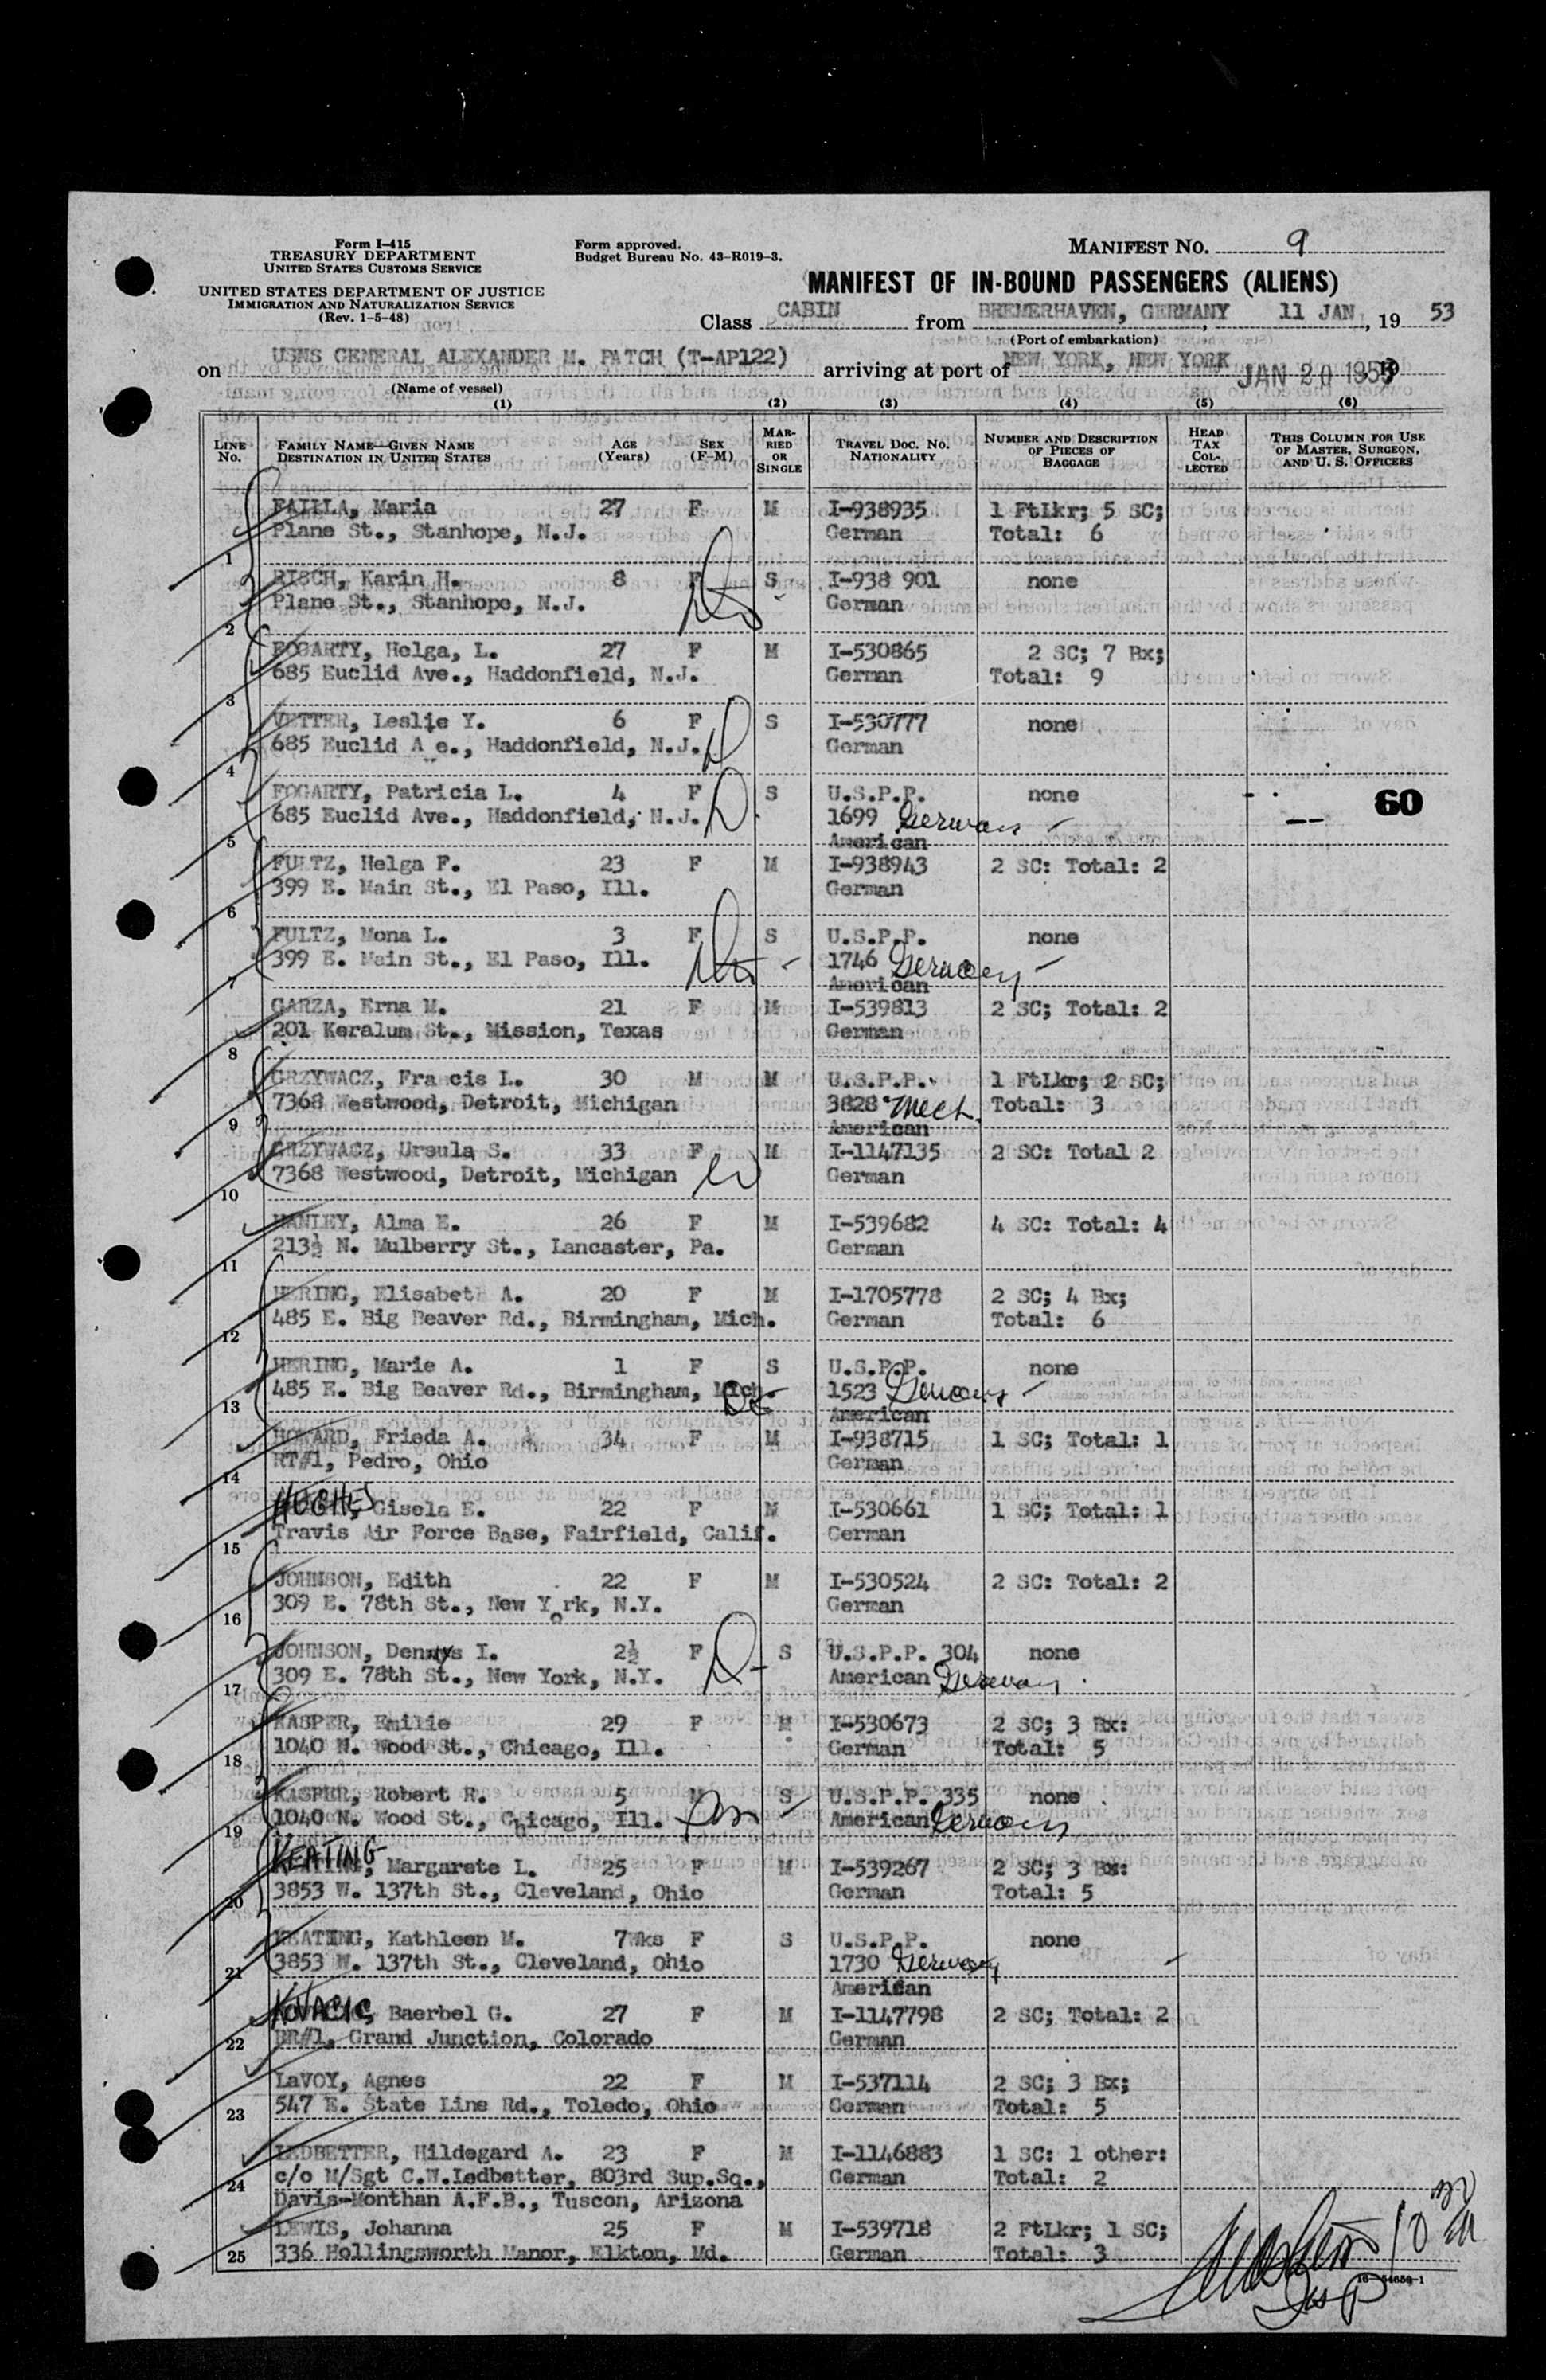 Form I-415
TREASURY DEPARTMENT
UNITED STATES CUSTOMS SERVICE
UNITED STATES DEPARTMENT OF JUSTICE
IMMIGRATION AND NATURALIZATION SERVICE
(Rev. 1-5-48)
Form approved.
Budget Bureau No. 43-R019-3.
MANIFEST NO. 9
MANIFEST OF IN-BOUND PASSENGERS (ALIENS)
Class CABIN from BREMERHAVEN, GERMANY, 11 JAN, 19 53
(Port of embarkation)
on USNS GENERAL ALEXANDER M. PATCH (T-AP122) arriving at port of NEW YORK, NEW YORK JAN 20 1953
(Name of vessel)
(1) (2) (3) (4) (5) (6)
LINE No. FAMILY NAME—GIVEN NAME DESTINATION IN UNITED STATES AGE (Years) SEX (F-M) MARRIED OR SINGLE TRAVEL DOC. NO. NATIONALITY NUMBER AND DESCRIPTION OF PIECES OF BAGGAGE HEAD TAX COLLECTED THIS COLUMN FOR USE OF MASTER, SURGEON, AND U. S. OFFICERS
FAILLA, Maria 27 F M I-938935 1 FtLkr; 5 SC;
Plane St., Stanhope, N.J. German Total: 6
1
RISCH, Karin H. 8 F S I-938 901 none
Plane St., Stanhope, N.J. German
2
FOGARTY, Helga, L. 27 F M I-530865 2 SC; 7 Bx;
685 Euclid Ave., Haddonfield, N.J. German Total: 9
3
VETTER, Leslie Y. 6 F S I-530777 none
685 Euclid A e., Haddonfield, N.J. German
4
FOGARTY, Patricia L. 4 F S U.S.P.P. none 60
685 Euclid Ave., Haddonfield, N.J. 1699 German
5 American
FULTZ, Helga F. 23 F M I-938943 2 SC: Total: 2
399 E. Main St., El Paso, Ill. German
6
FULTZ, Mona L. 3 F S U.S.P.P. none
399 E. Main St., El Paso, Ill. 1746 Germany
7 American
GARZA, Erna M. 21 F M I-539813 2 SC; Total: 2
201 Keralum St., Mission, Texas German
8
GRZYWACZ, Francis L. 30 M M U.S.P.P. 1 FtLkr; 2 SC;
7368 Westwood, Detroit, Michigan 3828 Mich. Total: 3
9 American
GRZYWACZ, Ursula S. 33 F M I-1147135 2 SC: Total 2
7368 Westwood, Detroit, Michigan German
10
HANLEY, Alma E. 26 F M I-539682 4 SC: Total: 4
213½ N. Mulberry St., Lancaster, Pa. German
11
HERING, Elisabeth A. 20 F M I-1705778 2 SC; 4 Bx;
485 E. Big Beaver Rd., Birmingham, Mich. German Total: 6
12
HERING, Marie A. 1 F S U.S.P.P. none
485 E. Big Beaver Rd., Birmingham, Mich. 1523 Germany
13 American
HOWARD, Frieda A. 34 F M I-938715 1 SC; Total: 1
RT#1, Pedro, Ohio German
14
HUGHES, Gisela E. 22 F M I-530661 1 SC; Total: 1
Travis Air Force Base, Fairfield, Calif. German
15
JOHNSON, Edith 22 F M I-530524 2 SC: Total: 2
309 E. 78th St., New York, N.Y. German
16
JOHNSON, Dennys I. 2½ F S U.S.P.P. 304 none
309 E. 78th St., New York, N.Y. American Germany
17
KASPER, Emilie 29 F M I-530673 2 SC; 3 Bx:
1040 N. Wood St., Chicago, Ill. German Total: 5
18
KASPER, Robert R. 5 M S U.S.P.P. 335 none
1040 N. Wood St., Chicago, Ill. American Germany
19
KEATING, Margarete L. 25 F M I-539267 2 SC; 3 Bx:
3853 W. 137th St., Cleveland, Ohio German Total: 5
20
KEATING, Kathleen M. 7Wks F S U.S.P.P. none
3853 W. 137th St., Cleveland, Ohio 1730 Germany
21 American
KOVACIC, Baerbel G. 27 F M I-1147798 2 SC; Total: 2
RR#1, Grand Junction, Colorado German
22
LaVOY, Agnes 22 F M I-537114 2 SC; 3 Bx;
547 E. State Line Rd., Toledo, Ohio German Total: 5
23
LEDBETTER, Hildegard A. 23 F M I-1146883 1 SC: 1 other:
c/o M/Sgt C.W.Ledbetter, 803rd Sup.Sq., German Total: 2
24
Davis-Monthan A.F.B., Tuscon, Arizona
LEWIS, Johanna 25 F M I-539718 2 FtLkr; 1 SC;
336 Hollingsworth Manor, Elkton, Md. German Total: 3
25
Insp